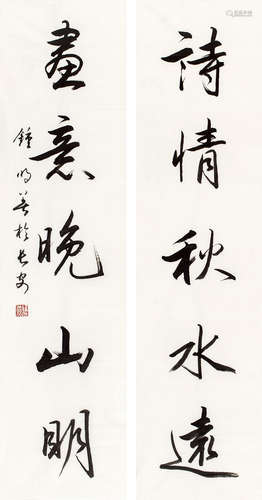 詩情秋水遠
畫意晚山明
鍾明善於長安